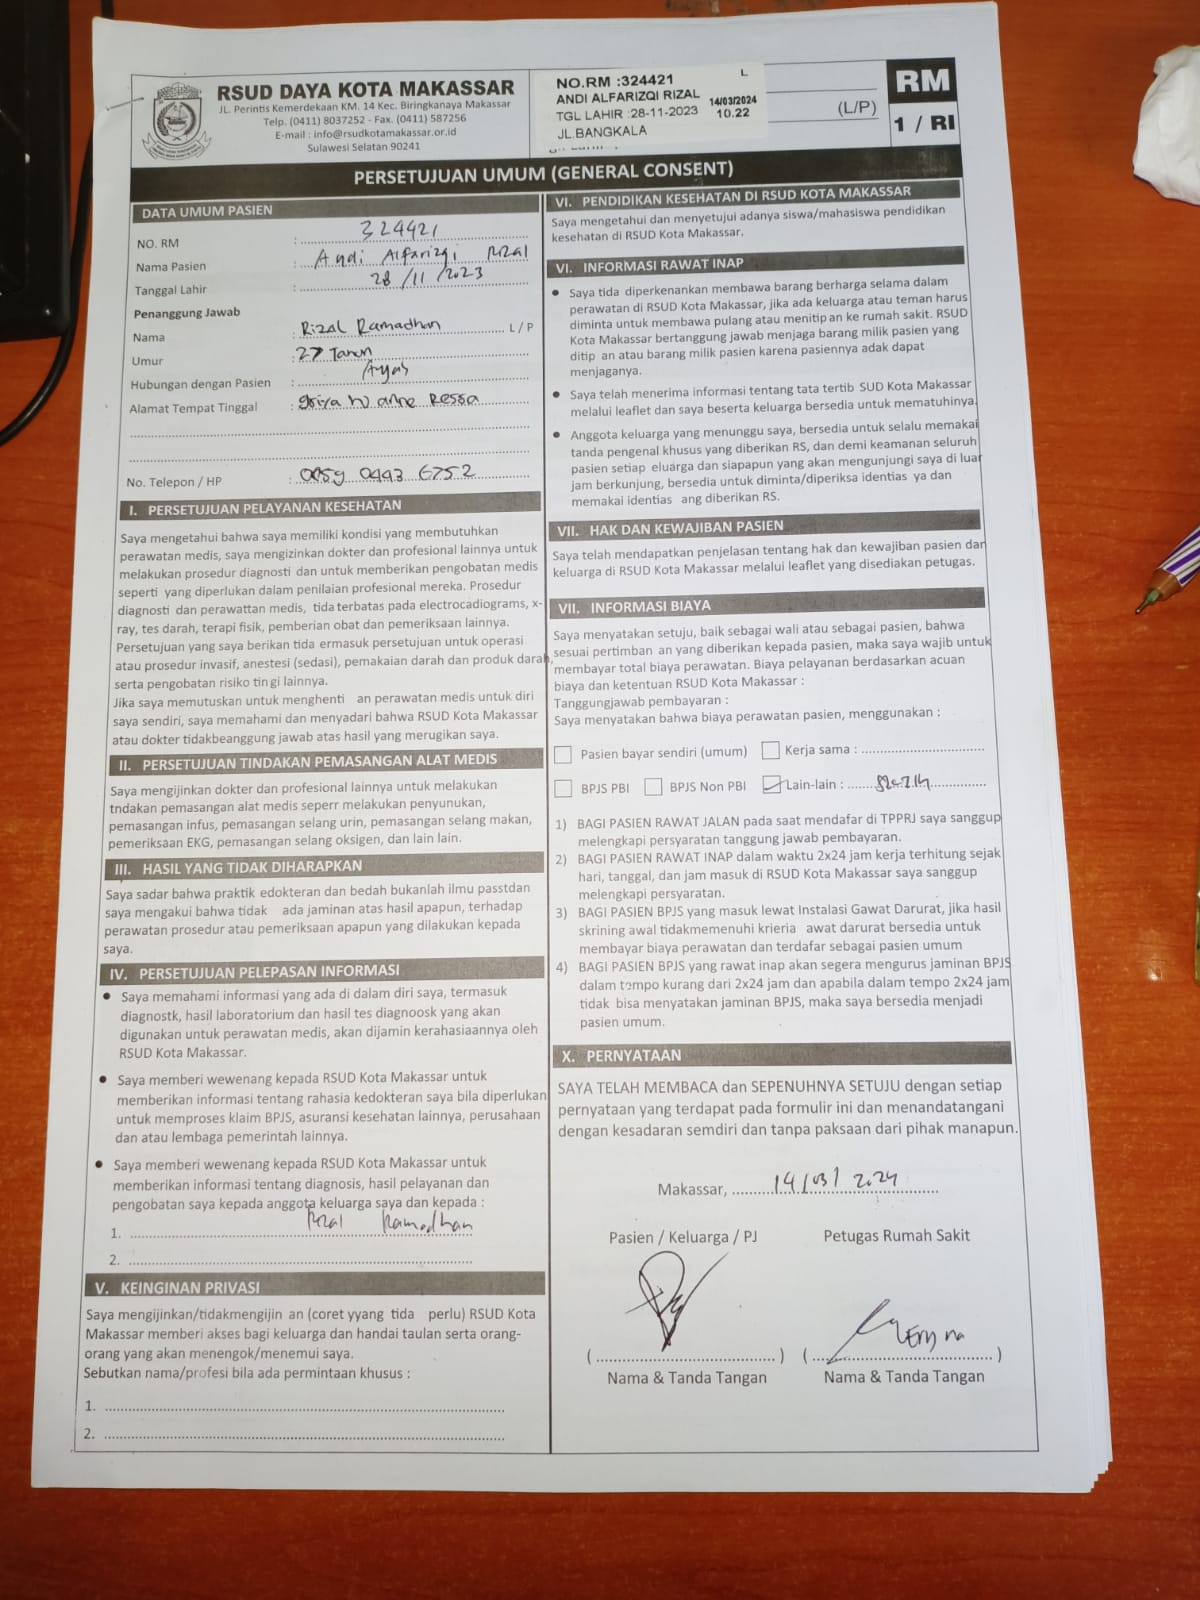 RSUD DAYA KOTA MAKASSAR
JL. Perintis Kemerdekaan KM. 14 Kec. Biringkanaya Makassar
Telp. (0411) 8037252 - Fax. (0411) 587256
E-mail : info@rsudkotamakassar.or.id
Sulawesi Selatan 90241
NO.RM :324421 L
ANDI ALFARIZQI RIZAL 14/03/2024
TGL LAHIR :28-11-2023 10.22
JL.BANGKALA
(L/P)
RM
1 / RI
PERSETUJUAN UMUM (GENERAL CONSENT)
DATA UMUM PASIEN
NO. RM : 324421
Nama Pasien : Andi Alfarizqi Rizal
Tanggal Lahir : 28/11/2023
Penanggung Jawab
Nama : Rizal Ramadhan L / P
Umur : 27 Tahun
Hubungan dengan Pasien : Ayah
Alamat Tempat Tinggal :
No. Telepon / HP : 0859 0443 6752
I. PERSETUJUAN PELAYANAN KESEHATAN
Saya mengetahui bahwa saya memiliki kondisi yang membutuhkan
perawatan medis, saya mengizinkan dokter dan profesional lainnya untuk
melakukan prosedur diagnosti dan untuk memberikan pengobatan medis
seperti yang diperlukan dalam penilaian profesional mereka. Prosedur
diagnosti dan perawattan medis, tida terbatas pada electrocadiograms, x-
ray, tes darah, terapi fisik, pemberian obat dan pemeriksaan lainnya.
Persetujuan yang saya berikan tida ermasuk persetujuan untuk operasi
atau prosedur invasif, anestesi (sedasi), pemakaian darah dan produk darah,
serta pengobatan risiko tin gi lainnya.
Jika saya memutuskan untuk menghenti an perawatan medis untuk diri
saya sendiri, saya memahami dan menyadari bahwa RSUD Kota Makassar
atau dokter tidakbeanggung jawab atas hasil yang merugikan saya.
II. PERSETUJUAN TINDAKAN PEMASANGAN ALAT MEDIS
Saya mengijinkan dokter dan profesional lainnya untuk melakukan
tndakan pemasangan alat medis seperr melakukan penyunukan,
pemasangan infus, pemasangan selang urin, pemasangan selang makan,
pemeriksaan EKG, pemasangan selang oksigen, dan lain lain.
III. HASIL YANG TIDAK DIHARAPKAN
Saya sadar bahwa praktik edokteran dan bedah bukanlah ilmu passtdan
saya mengakui bahwa tidak ada jaminan atas hasil apapun, terhadap
perawatan prosedur atau pemeriksaan apapun yang dilakukan kepada
saya.
IV. PERSETUJUAN PELEPASAN INFORMASI
• Saya memahami informasi yang ada di dalam diri saya, termasuk
diagnostk, hasil laboratorium dan hasil tes diagnoosk yang akan
digunakan untuk perawatan medis, akan dijamin kerahasiaannya oleh
RSUD Kota Makassar.
• Saya memberi wewenang kepada RSUD Kota Makassar untuk
memberikan informasi tentang rahasia kedokteran saya bila diperlukan
untuk memproses klaim BPJS, asuransi kesehatan lainnya, perusahaan
dan atau lembaga pemerintah lainnya.
• Saya memberi wewenang kepada RSUD Kota Makassar untuk
memberikan informasi tentang diagnosis, hasil pelayanan dan
pengobatan saya kepada anggota keluarga saya dan kepada :
1. Rizal Ramadhan
2.
V. KEINGINAN PRIVASI
Saya mengijinkan/tidakmengijin an (coret yyang tida perlu) RSUD Kota
Makassar memberi akses bagi keluarga dan handai taulan serta orang-
orang yang akan menengok/menemui saya.
Sebutkan nama/profesi bila ada permintaan khusus :
1.
2.
VI. PENDIDIKAN KESEHATAN DI RSUD KOTA MAKASSAR
Saya mengetahui dan menyetujui adanya siswa/mahasiswa pendidikan
kesehatan di RSUD Kota Makassar.
VI. INFORMASI RAWAT INAP
• Saya tida diperkenankan membawa barang berharga selama dalam
perawatan di RSUD Kota Makassar, jika ada keluarga atau teman harus
diminta untuk membawa pulang atau menitip an ke rumah sakit. RSUD
Kota Makassar bertanggung jawab menjaga barang milik pasien yang
ditip an atau barang milik pasien karena pasiennya adak dapat
menjaganya.
• Saya telah menerima informasi tentang tata tertib SUD Kota Makassar
melalui leaflet dan saya beserta keluarga bersedia untuk mematuhinya.
• Anggota keluarga yang menunggu saya, bersedia untuk selalu memakai
tanda pengenal khusus yang diberikan RS, dan demi keamanan seluruh
pasien setiap eluarga dan siapapun yang akan mengunjungi saya di luar
jam berkunjung, bersedia untuk diminta/diperiksa identias ya dan
memakai identias ang diberikan RS.
VII. HAK DAN KEWAJIBAN PASIEN
Saya telah mendapatkan penjelasan tentang hak dan kewajiban pasien dan
keluarga di RSUD Kota Makassar melalui leaflet yang disediakan petugas.
VII. INFORMASI BIAYA
Saya menyatakan setuju, baik sebagai wali atau sebagai pasien, bahwa
sesuai pertimban an yang diberikan kepada pasien, maka saya wajib untuk
membayar total biaya perawatan. Biaya pelayanan berdasarkan acuan
biaya dan ketentuan RSUD Kota Makassar :
Tanggungjawab pembayaran :
Saya menyatakan bahwa biaya perawatan pasien, menggunakan :
Pasien bayar sendiri (umum) Kerja sama :
BPJS PBI BPJS Non PBI Lain-lain :
1) BAGI PASIEN RAWAT JALAN pada saat mendafar di TPPRJ saya sanggup
melengkapi persyaratan tanggung jawab pembayaran.
2) BAGI PASIEN RAWAT INAP dalam waktu 2x24 jam kerja terhitung sejak
hari, tanggal, dan jam masuk di RSUD Kota Makassar saya sanggup
melengkapi persyaratan.
3) BAGI PASIEN BPJS yang masuk lewat Instalasi Gawat Darurat, jika hasil
skrining awal tidakmemenuhi krieria awat darurat bersedia untuk
membayar biaya perawatan dan terdafar sebagai pasien umum
4) BAGI PASIEN BPJS yang rawat inap akan segera mengurus jaminan BPJS
dalam tempo kurang dari 2x24 jam dan apabila dalam tempo 2x24 jam
tidak bisa menyatakan jaminan BPJS, maka saya bersedia menjadi
pasien umum.
X. PERNYATAAN
SAYA TELAH MEMBACA dan SEPENUHNYA SETUJU dengan setiap
pernyataan yang terdapat pada formulir ini dan menandatangani
dengan kesadaran semdiri dan tanpa paksaan dari pihak manapun.
Makassar, 14/03/2024
Pasien / Keluarga / PJ Petugas Rumah Sakit
( ) ( )
Nama & Tanda Tangan Nama & Tanda Tangan